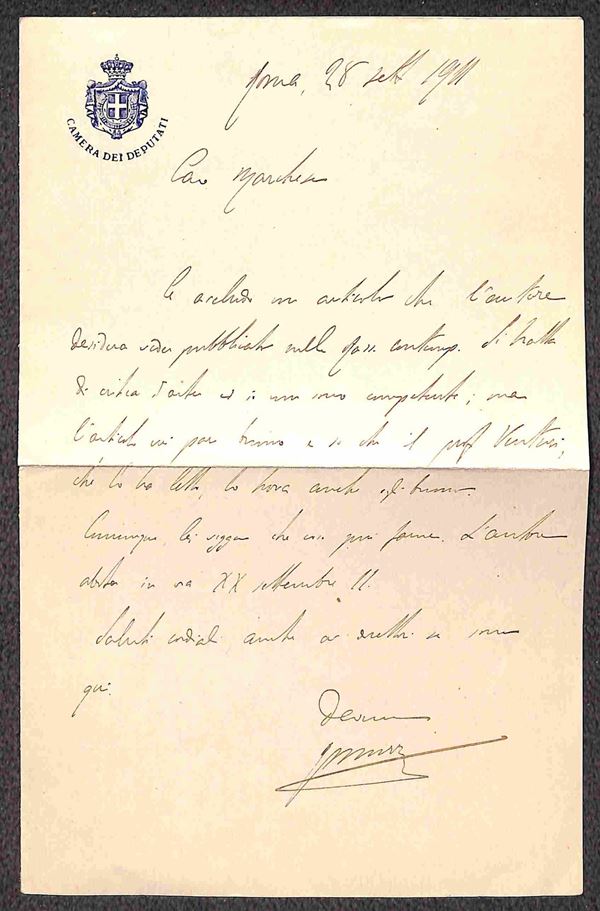 CAMERA DEI DEPUTATI
Roma, 28 sett 1911
Caro Marchese
Le accludo un articolo che l'autore
desidera veder pubblicato nella Rass. contemp. Si tratta
di critica d'arte ed io non sono competente; ma
l'articolo mi pare buono e so che il prof Venturi,
che lo ha letto, lo trova anche egli buono.
Comunque lei vegga che cosa può farne. L'autore
abita in via XX settembre 11.
Saluti cordiali anche a se sono
qui.